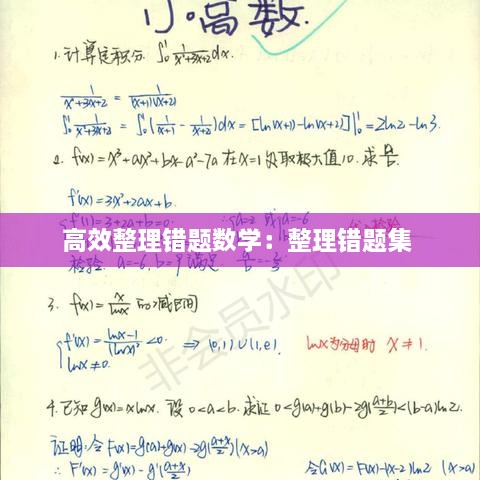 小高数
1.计算定积分 ∫₀¹ 1/(x²+3x+2) dx.
1/(x²+3x+2) = 1/((x+1)(x+2))
∫₀¹ 1/(x²+3x+2) = ∫₀¹ (1/(x+1) - 1/(x+2))dx = [ln(x+1)-ln(x+2)]|₀¹ = 2ln2-ln3.
2. f(x)=x³+ax²+bx-a²-7a 在x=1处取极大值10. 求a/b
f'(x)=3x²+2ax+b.
f'(1)=3+2a+b=0
高效整理错题数学：整理错题集
检验 a=-6, b=9 满足 a/b=-2/3
3. f(x)=x/lnx 的减区间
f'(x)=(lnx-1)/(lnx)²<0. ⇒ (0,1)∪(1,e). lnx为分母时 x≠1.
lnx≠0.
非会员水印
4.已知g(x)=xlnx. 设0<a<b. 求证 0<g(a)+g(b)-2g((a+b)/2)<(b-a)ln2.
证明:令F(x)=g(a)+g(x)-2g((a+x)/2)(x>a)
∴ F'(x)=g'(x)-g'((a+x)/2) 令G(x)=F(x)-(x-a)ln2 (x>a)